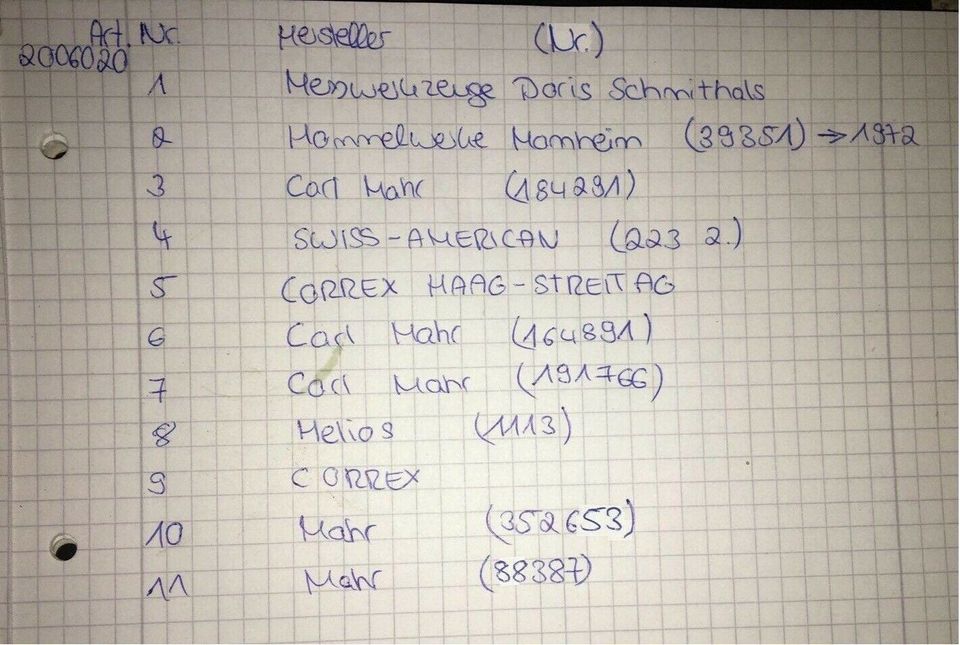 Art. Nr. Hersteller (Nr.)
2006020
1 Messwerkzeuge Doris Schmithals
2 Hommelwerke Manheim (39351) → 1972
3 Carl Mahr (184291)
4 SWISS-AMERICAN (223 2.)
5 CORREX HAAG-STREIT AG
6 Carl Mahr (164891)
7 Carl Mahr (191766)
8 Helios (1113)
9 CORREX
10 Mahr (352653)
11 Mahr (88387)